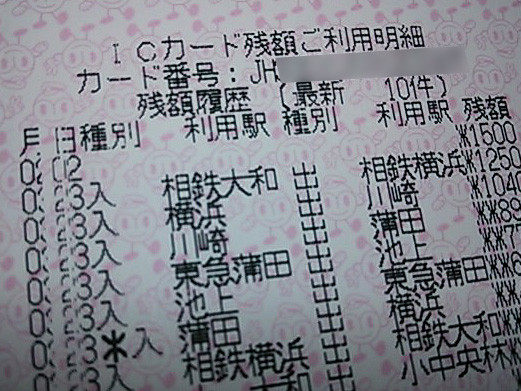 ICカード残額ご利用明細
カード番号：JH
残額履歴 (最新 10件)
月日種別 利用駅 種別 利用駅 残額
¥1500
3入 相鉄大和 出 相鉄横浜 ¥1250
3入 横浜 出 川崎 ¥1040
3入 川崎 出 蒲田
3入 東急蒲田 出 池上
3入 池上 出 東急蒲田
3*入 蒲田 出 横浜
3入 相鉄横浜 出 相鉄大和
小中央林